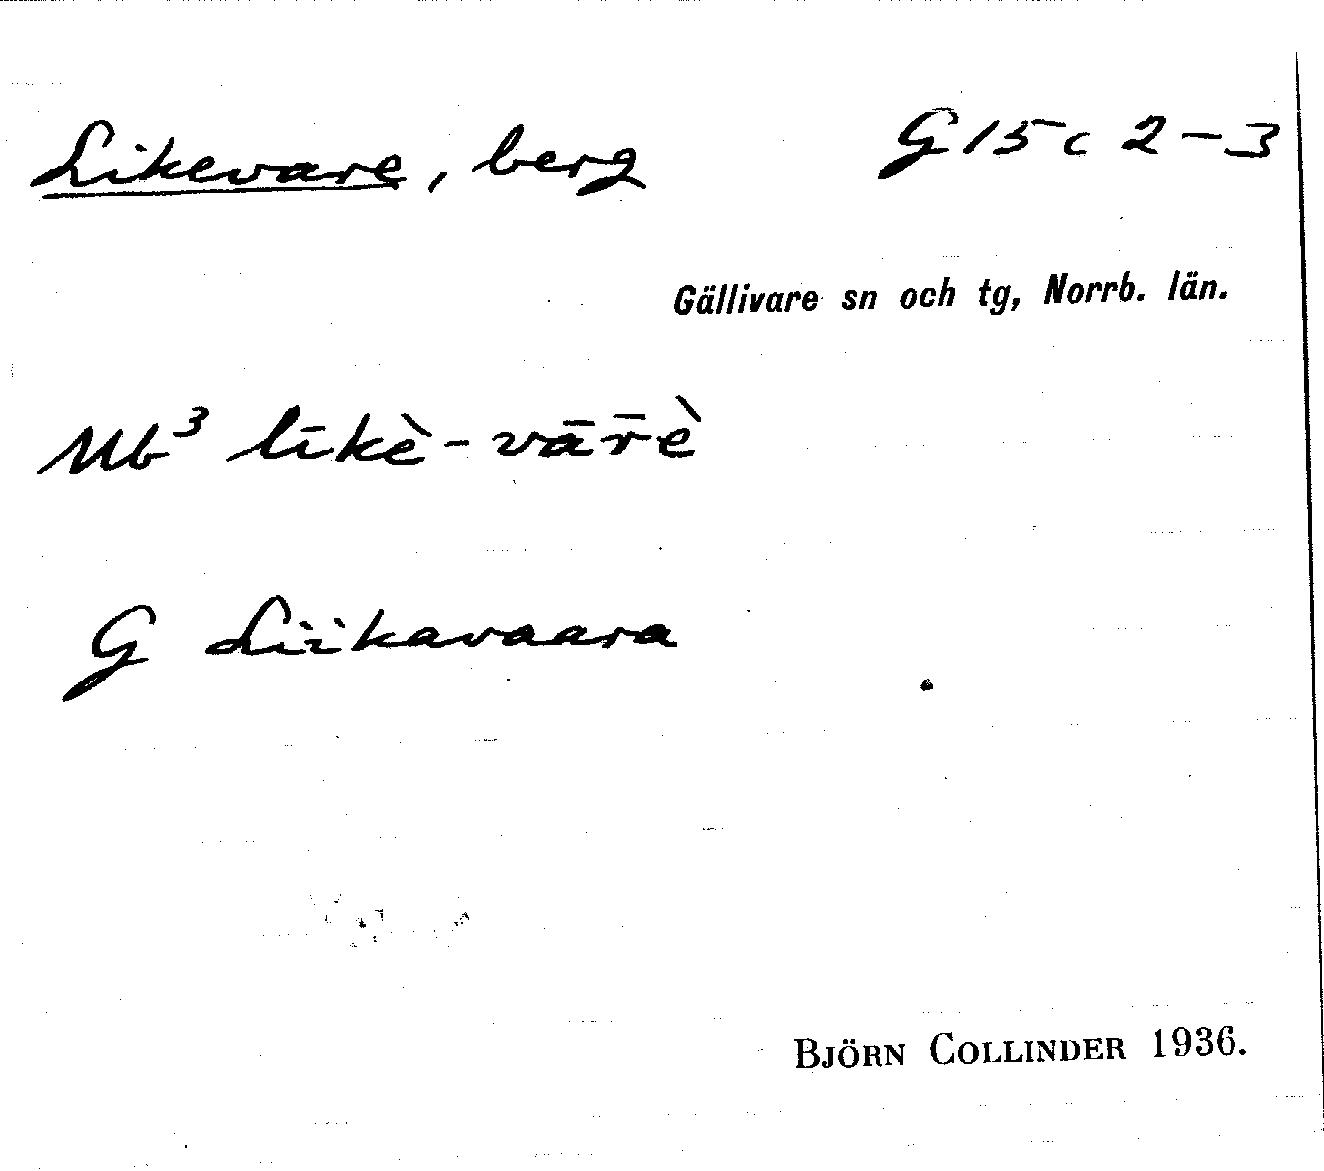 Likevare, berg G 15 c 2-3
Gällivare sn och tg, Norrb. län.
Ub³ līkè-vār̄è
G Liikavaara
BJÖRN COLLINDER 1936.